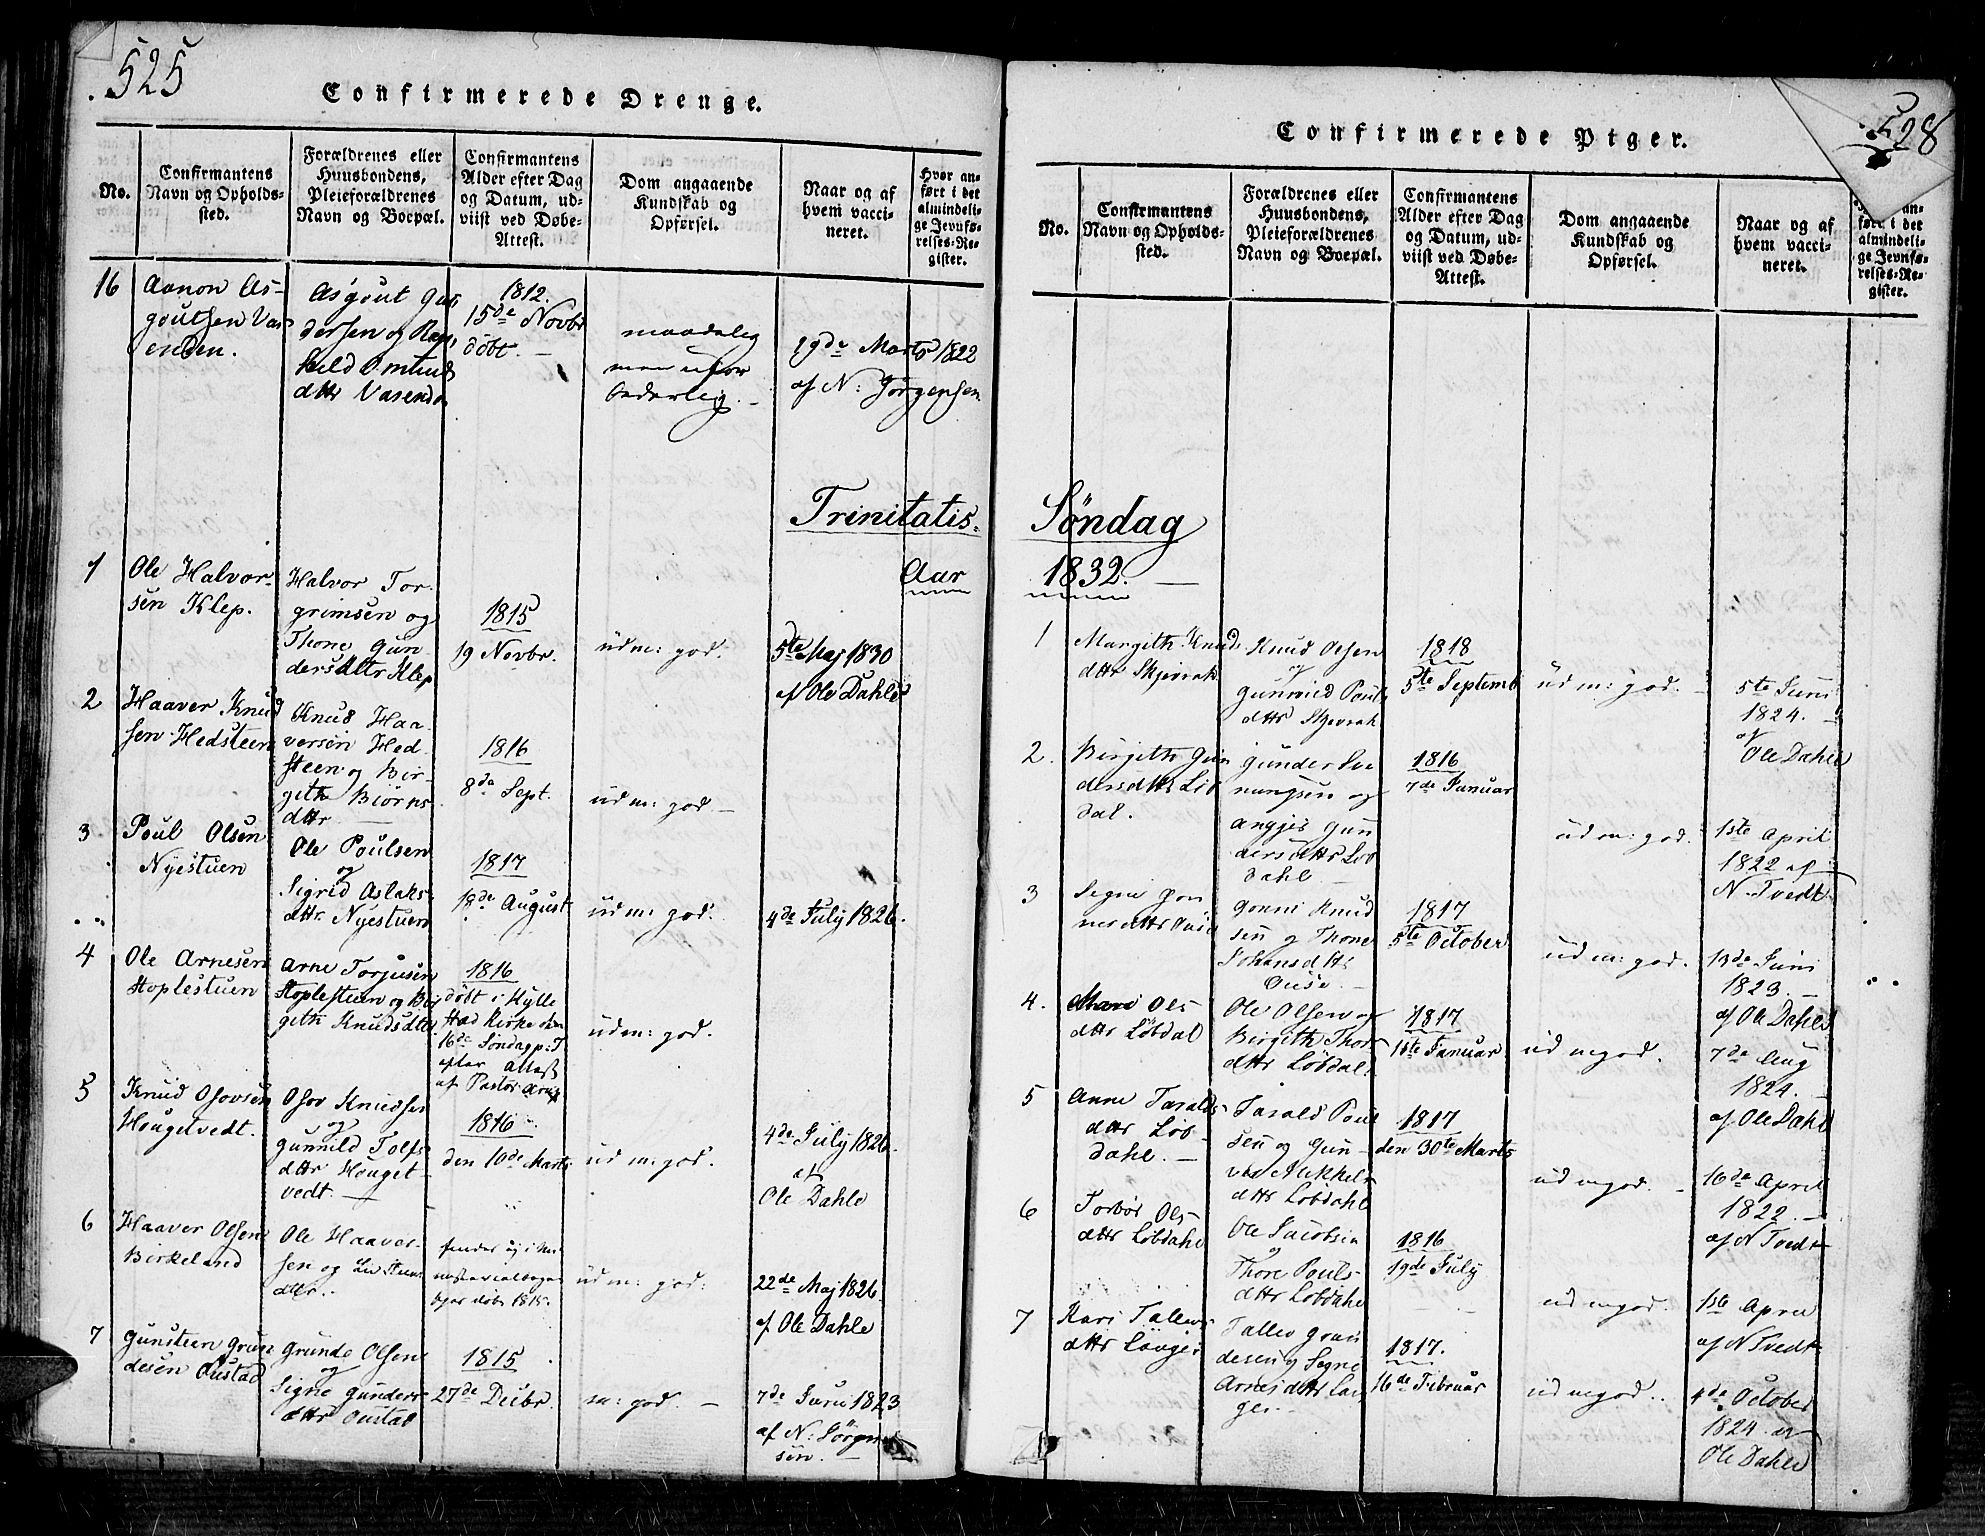 525
Confirmerede Drenge.
No.
Confirmantens
Navn og Opholds-
sted.
Forældrenes eller
Huusbondens,
Pleieforældrenes
Navn og Boepæl.
Confirmantens
Alder efter Dag
og Datum, ud-
viist ved Døbe-
Attest.
Dom angaaende
Kundskab og
Opførsel.
Naar og af
hvem vacci-
neret.
Hvor an-
ført i det
almindeli-
ge Jevnfø-
relses-Re-
gister.
16
Aanon As-
goutsen Vas
enden.
Asgout Gun
dersen og Rag
hild Omunds
dttr Vasend
1812.
15de Novbr
döbt. -
maadelig
men ufor
bederlig. -
29de Marts 1822
af N: Jörgensen
Trinitatis
Aar
1
Ole Halvor-
sen Klep.
Halvor Tor-
grimsen og
Thone Gun
dersdttr Klep
1815
19 Novbr.
udm: god.
5te Maj 1830
af Ole Dahle
2
Haaver Knud
sen Hedsteen
Knud Haa-
versen Hed-
steen og Bir-
gith Biörns
dttr
1816
8de Sept.
udm: god -
3
Poul Olsen
Nyestuen
Ole Poulsen
og
Sigrid Aslaks-
dttr. Nyestuen
1817
18de August
udm: god.
4de July 1826.
4
Ole Arnesen
Stoplestuen
Arne Torjusen
Stoplestuen og Bir
gith Knudsdttr
1816
döbt i Hylle
stad Kirke den
16de Söndag p: T
efter Attest
af Pastor
udm: god.
5
Knud Osovsen
Hougetvedt.
Osov Knudsen
og
Gunnild Tolfs
dttr Houget-
vedt. -
1816
den 10de Marts
udm: god.
4de July 1826.
af
Ole Dahle
6
Haaver Olsen
Birkeland
Ole Haaver-
sen og Liv Steens
dttr.
findes ej i mi-
nisterialbogen
döbt 1815.
udm: god.
22de Maj 1826
af Ole Dahle
7
Gunsteen Grun
desen Oustad
Grunde Olsen
og
Signe Gunders-
dttr Oustad
1815
27de Decbr.
m: god. -
7de Juni 1823
af N: Jörgen
sen. -
528
Confirmerede Piger.
No.
Confirmantens
Navn og Opholds-
sted.
Forældrenes eller
Huusbondens,
Pleieforældrenes
Navn og Boepæl.
Confirmantens
Alder efter Dag
og Datum, ud-
viist ved Døbe-
Attest.
Dom angaaende
Kundskab og
Opførsel.
Naar og af
hvem vacci-
neret.
an-
ført i det
almindeli-
ge Jevnfø-
relses-Re-
gister.
Söndag
1832. -
1
Margith Knuds
dttr Skjevrak
Knud Olsen
og
Gunnild Pouls
dttr Skjevrak
1818
5te Septemb
udm: god. -
5te Juni
1824. -
af
Ole Dahle
2.
Birgith Gun
dersdttr Löb
dal.
Gunder
nungsen og
Angjer Gun
dersdttr Löb
dahl. -
1816
7de Januar
udm: god.
1ste April
1822 af
N. Tvedt.
3
Segne Gon
nersdttr Ouse
Gonni Knud
sen og Thone
Johansdttr
Ouse. -
1817
5te October
udm: god.
13de Juni
1823. -
af Ole Dahle
4.
Mari Ols
dttr Löbdal
Ole Olsen og
Birgith Thors
dttr Löbdal.
1817
11te Januar
udm god.
7de Aug
1824. -
af Ole Dahl
5
Anne Taralds-
dttr Löb-
dahl. -
Tarald Poul
sen og Gun-
vor Mikkels
dttr Löbdahl
1817
den 30te Marts
udm god. -
16de April
1822. -
af N Tvedt
6
Torbör Ols
dttr Löbdahl
Ole Jacobsen
og
Thore Pouls-
dttr Löbdahl
1816
19de July
udm god.
1ste April
af N Tvedt
7
Kari Tallevs
dttr Lövgei
Tallev Grun
desen og Segne
Arnesdttr Lau
gei. -
1817.
16de Februar
udm god.
4de October
1824 af
Ole Dahle